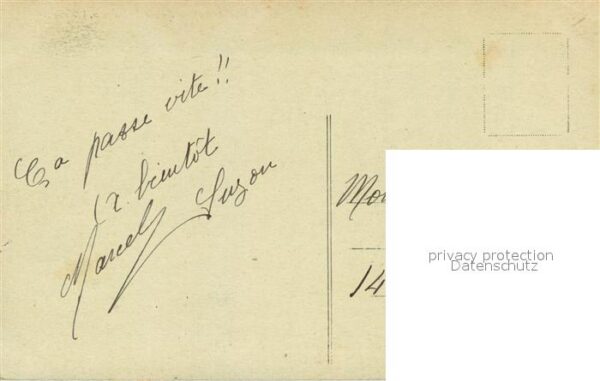 Ça passe vite!!
à bientôt
Marcel Suzon
Mon
14
privacy protection
Datenschutz